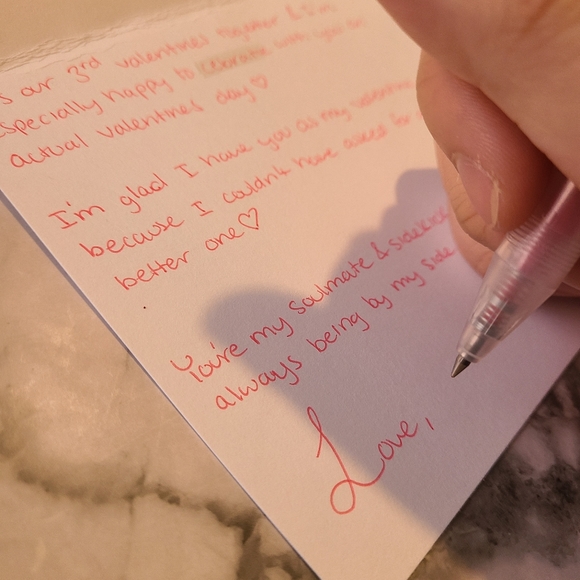 s our 3rd valentines together & I'm
especially happy to celebrate with you on
actual valentines day♡
I'm glad I have you as my valentine
because I couldn't have asked for a
better one♡
You're my soulmate & sidekick
always being by my side
Love,